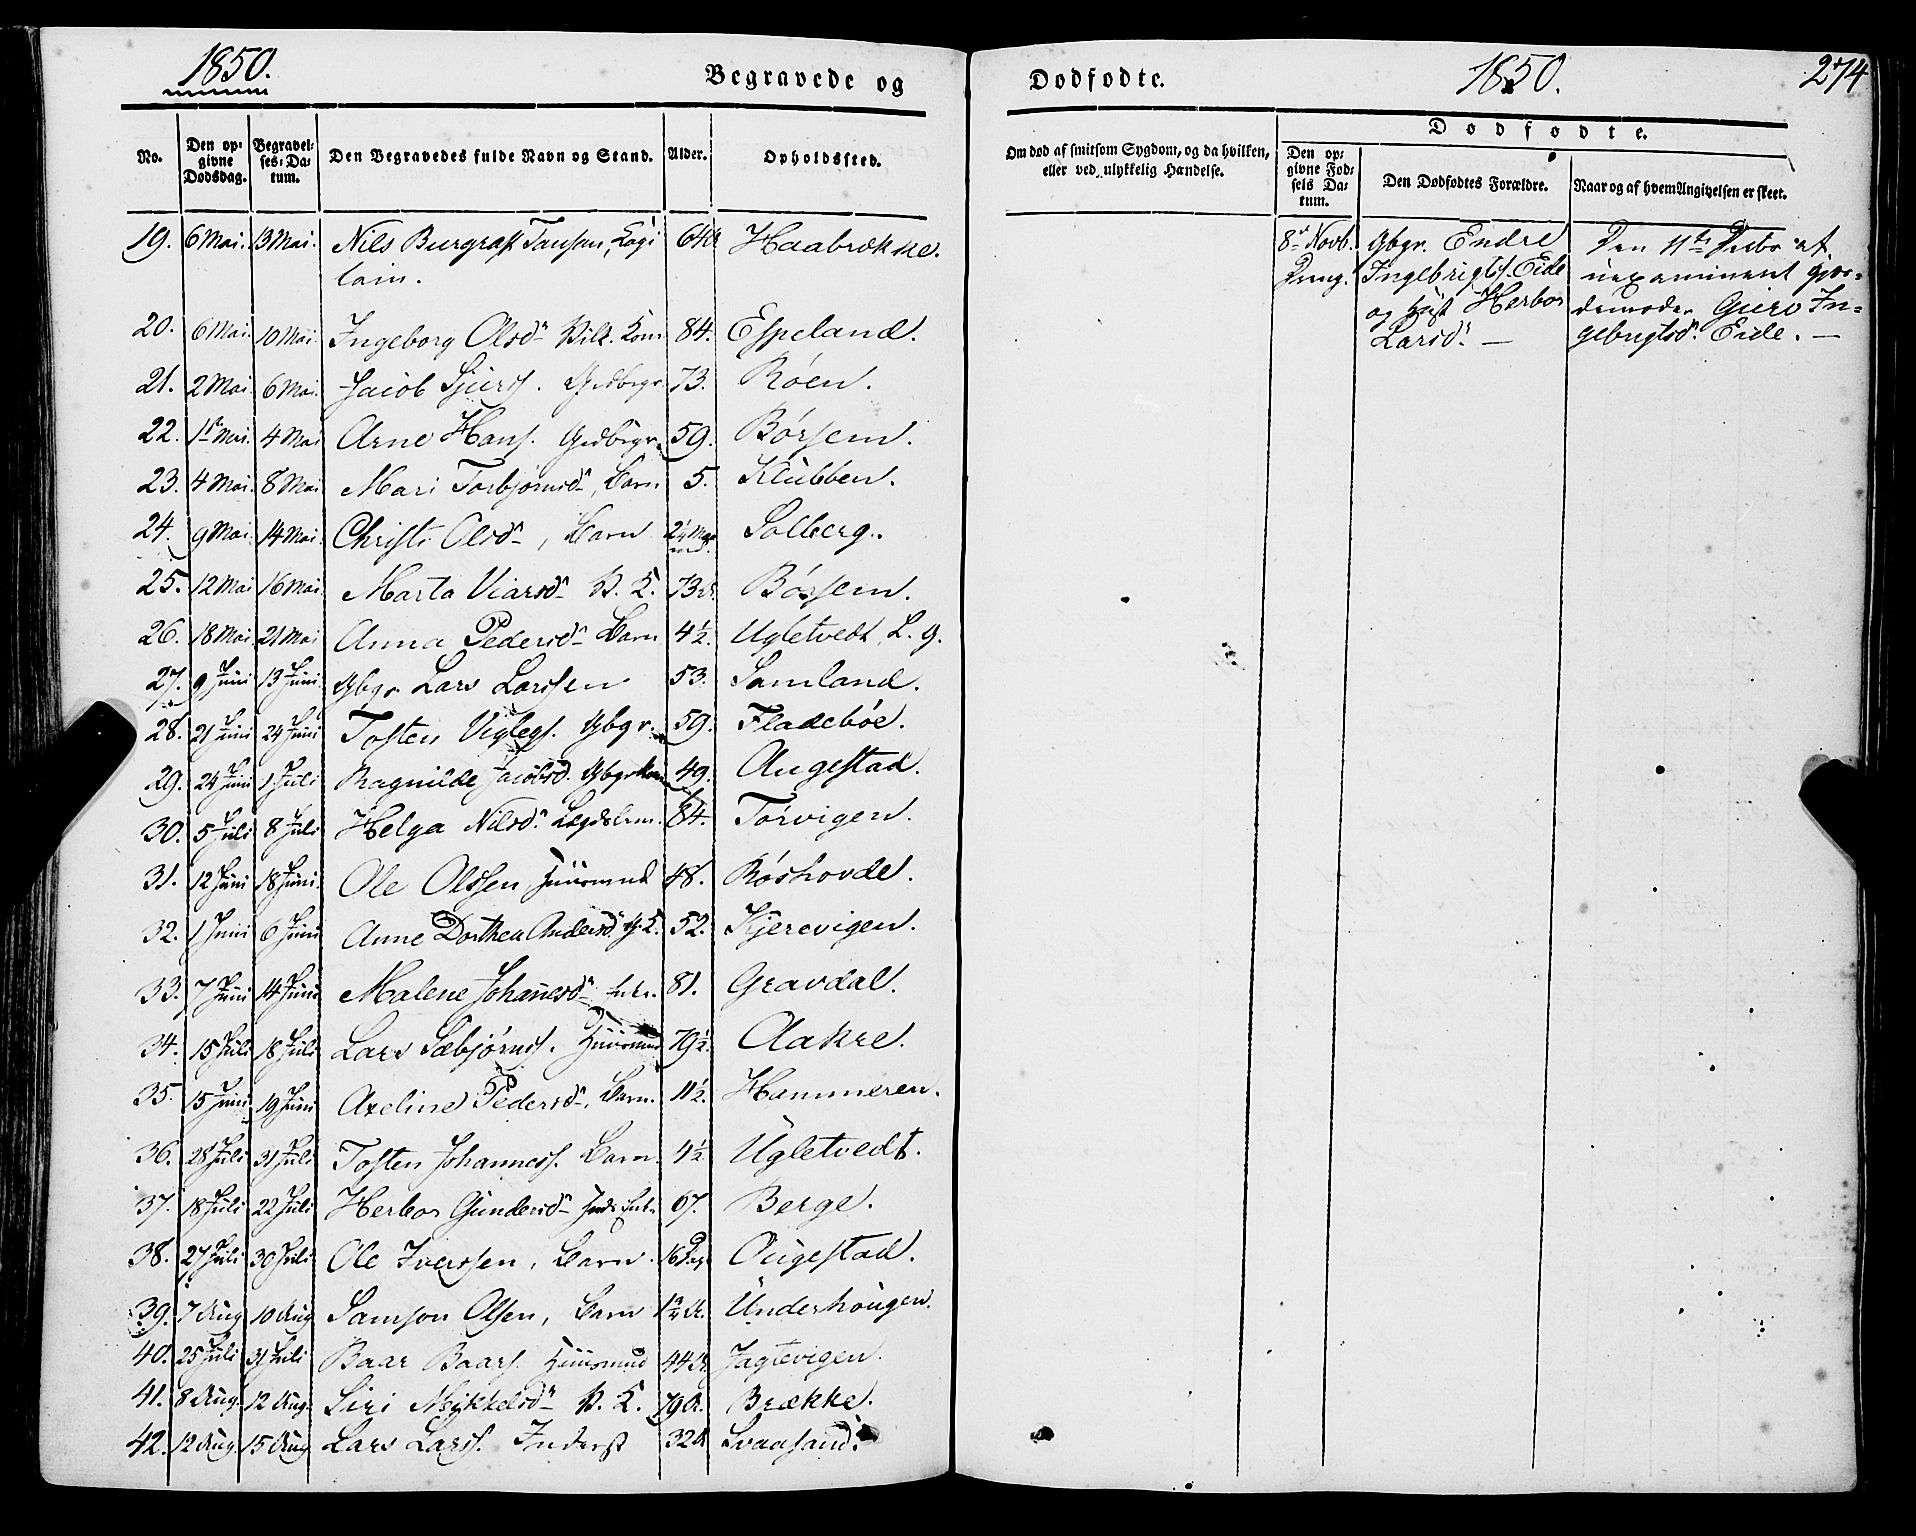 1850.
Begravede og
No. Den opgivne Dødsdag. Begravelses-Datum. Den Begravedes fulde Navn og Stand. Alder. Opholdssted.
19. 6 Mai. 13 Mai. Nils Burgraf Tausan, Capitain. 64 Haabrække.
20. 6 Mai. 10 Mai. Ingeborg Olsdr 84. Espeland.
21. 2 Mai 6 Mai. Jacob Sjurs. Grdbrgr. 73. Røen.
22. 1ste Mai. 4 Mai Arne Hans. Grdbrgr. 59. Børsem.
23. 4 Mai. 8 Mai Mari Torbjørnsdr, Barn 5. Klubben.
24. 9 Mai. 14 Mai. Christi Olsdr, Barn Solberg.
25. 12 Mai 16 Mai. Marta Viarsdr K. 73 Børsem.
26. 18 Mai 21 Mai Anna Pedersdr Barn 4½. Ugletvedt L. g.
27. 9 Juni 13 Juni. Gbgr. Lars Larssen 53. Samland.
28. 21 Juni 24 Juni Tosten Viglegs. Gbgr. 59. Fladebøe.
29. 24 Juni 1 Juli Ragnilde Jacobsd. Gbgrkone 49. Augestad.
30. 5 Juli 8 Juli Helga Nilsdr. Lægdslem. 84. Torvigen.
31. 12 Juni 18 Juni. Ole Olssen Huusmnd 48. Røshovde.
32. 1 Juni 6 Juni Anne Dorthea Andersdr. G. K. 52. Kjerevigen.
33. 7 Juni 14 Juni Malene Johanesdr Enke. 81. Gravdal.
34. 15 Juli 18 Juli Lars Sæbjørns. Huusmnd 79½. Aakre.
35. 15 Juni 19 Juni Axeline Pedersdr, Barn. 11½. Hammeren.
36. 28 Juli 31 Juli Tosten Johanness. Barn. 4½ Ugletvedt.
37. 18 Juli 22 Juli Herbor Gundersdr 67. Berge.
38. 27 Juli 30 Juli Ole Iverssen, Barn. 16 Dag. Augestad.
39. 7 Aug 10 Aug Samson Olsen, Barn Underhougen.
40. 25 Juli 31 Juli Baar Baars. Huusmnd 44 Jagtevigen.
41. 8 Aug. 12 Aug. Siri Mikkelsdr K. 79 Brække.
42. 12 Aug. 15 Aug Lars Larss. Inderst 32 Svaasand.
Dødfødte.
1850.
274
Om død af smitsom Sygdom, og da hvilken, eller ved ulykkelig Hændelse.
Dødfødte.
Den opgivne Fødsels Datum. Den Dødfødtes Forældre. Naar og af hvem Angivelsen er skeet.
8de Novb. Gbgr. Endre Den 11te Decbr af
Dreng. Ingebrigts. Eide uexamineret Gjor-
og Herbor demoder Guro In-
Larsdr. — gebrigtsdr Eide. —